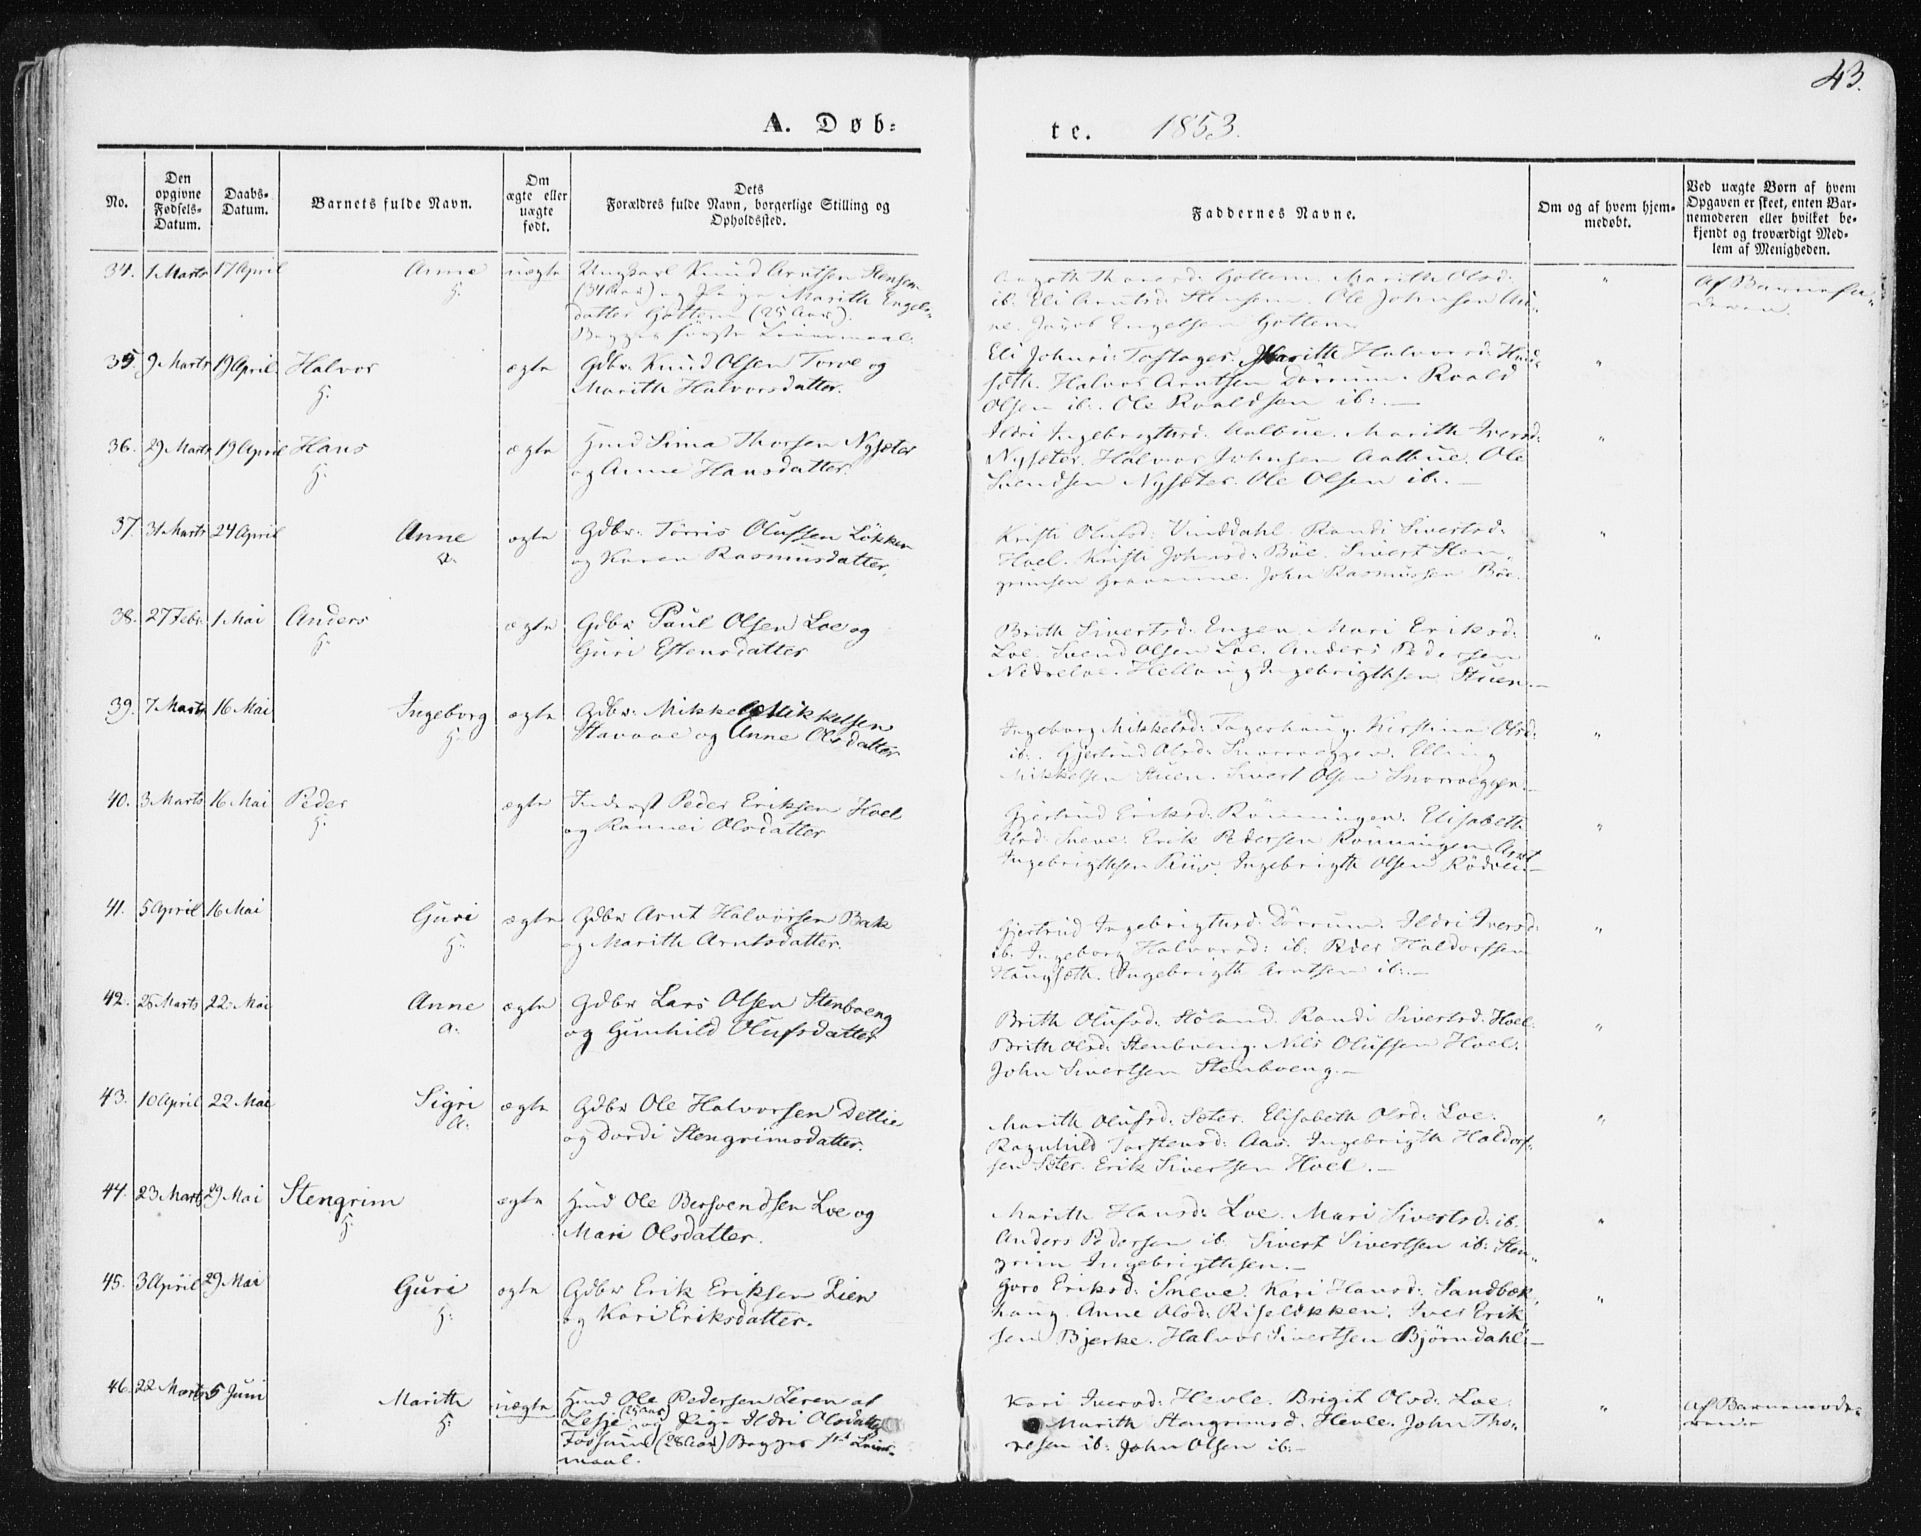 43.
A. Døb=
te. 1853.
No.
Den opgivne Fødsels-Datum.
Daabs-Datum.
Barnets fulde Navn.
Om ægte eller uægte født.
Dets Forældres fulde Navn, borgerlige Stilling og Opholdssted.
Faddernes Navne.
Om og af hvem hjemmedøbt.
Ved uægte Børn af hvem Opgaven er skeet, enten Barnemoderen eller hvilket bekjendt og troværdigt Medlem af Menigheden.
34. 1 Marts 17 April Anne uægte Ungkarl Knud Arntsen Stensem
H. (34 Aar) og Pige Marith Engels-
datter Gottem (25 Aar).
Begges første Leiermaal.
Thoresd: Gottem. Marith Olsd:
ib: Eli Arntsd: Stensem. Ole Johnsen
Jacob Engelsen Gottem
" Af Barnefa-
deren.
35. 9 Marts 19 April Halvor ægte Gdbr. Knud Olsen Torve og
H. Marith Halvorsdatter.
Eli Johnsd: Tostager. Marith Halvorsd: Hund-
seth. Halvor Arntsen Dørrum. Roald
Olsen ib:. Ole Roaldsen ib:.—
"
36. 29 Marts 19 April Hans ægte Hmd Sima Thorsen Nysæter
H. og Anne Hansdatter.
Ildri Ingebrigtsd: Aalbue. Marith Iversd:
Nysæter. Halvor Johnsen Aalbue. Ole
Svendsen Nysæter. Ole Olsen ib:.—
"
37. 31 Marts 24 April Anne ægte Gdbr. Torris Olufsen Løkken
og Karen Rasmusdatter.
Kristi Olufsd: Vinddahl. Randi Sivertsd:
Hoel. Kristi Johnsd: Böe. Sivert Sten-
grimsen Gravaune. John Rasmussen Böe.
"
38. 27 Febr. 1 Mai Anders ægte Gdbr Paul Olsen Loe og
H. Guri Estensdatter
Brith Sivertsd: Engen. Mari Eriksd:
Loe. Svend Olsen Loe. Anders Pedersen
Nedreloe. Ingebrigthsen Stuen.—
"
39. 7 Marts 16 Mai Ingeborg ægte Gdbr. Mikkel Mikkelsen
H. og Anne Olsdatter
Ingeborg Mikkelsd: Fagerhaug. Kirstina Olsd:
ib:. Gjertrud Olsd: Snoeveggen. Elling
Mikkelsen Stuen. Sivert Olsen Snoeveggen.—
"
40. 3 Marts 16 Mai Peder ægte Inderst Peder Eriksen Hoel
H. og Rannei Olsdatter
Gjertrud Eriksd: Rönningen. Elisabeth
Olsd: Sneve. Erik Pedersen Rönningen Arnt
Ingebrigthsen Riis. Ingebrigth Olsen Rödeli.—
"
41. 5 April 16 Mai Guri ægte Gdbr Arnt Halvorsen Bak
H. og Marith Arntsdatter.
Gjertrud Ingebrigthsd: Dörrum. Ildri Iversd:
ib: Ingeborg Halvorsd: ib: Peder Haldorsen
Haugseth. Ingebrigth Arntsen ib:—
"
42. 25 Marts 22 Mai Anne ægte Gdbr Lars Olsen Stenboeng
A. og Gunhild Olufsdatter
Brith Olufsd: Höland. Randi Sivertsd: Hoel.
Brith Olsd: Stenboeng. Nils Olufsen Hoel.
John Sivertsen Stenboeng.—
"
43. 10 April 22 Mai Sigri ægte Gdbr Ole Halvorsen Detlie
A. og Dordi Stengrimsdatter.
Marith Olufsd: Sæter. Elisabeth Olsd: Loe.
Ragnhild Torstensd: Aas. Ingebrigth Haldor-
sen Sæter. Erik Sivertsen Hoel.—
"
44. 23 Marts 29 Mai Stengrim ægte Hmd Ole Bersvendsen Loe og
H. Mari Olsdatter.
Marith Hansd: Loe. Mari Sivertsd: ib.
Anders Pedersen ib. Sivert Sivertsen ib: Sten-
grim Ingebrigthsen.—
"
45. 3 April 29 Mai Guri ægte Gdbr Erik Eriksen Lien
H. og Kari Eriksdatter.
Goro Eriksd: Sneve. Kari Hansd: Sandbæk-
haug. Anne Olsd: Riselökken. Iver Erik-
sen Bjerke. Halvor Sivertsen Björndahl—
"
46. 22 Marts 5 Juni Marith uægte Hmd Ole Pedersen Leren af
H. Lesje og Pige Ildri Olsdatter
Fossum (28 Aar) Begges 1ste Leier-
maal.
Kari Iversd: Hevle. Brigit Olsd: Loe
Marith Stengrimsd. Hevle. John Tho-
resen ib: John Olsen ib:—
" Af Barnemode-
ren.